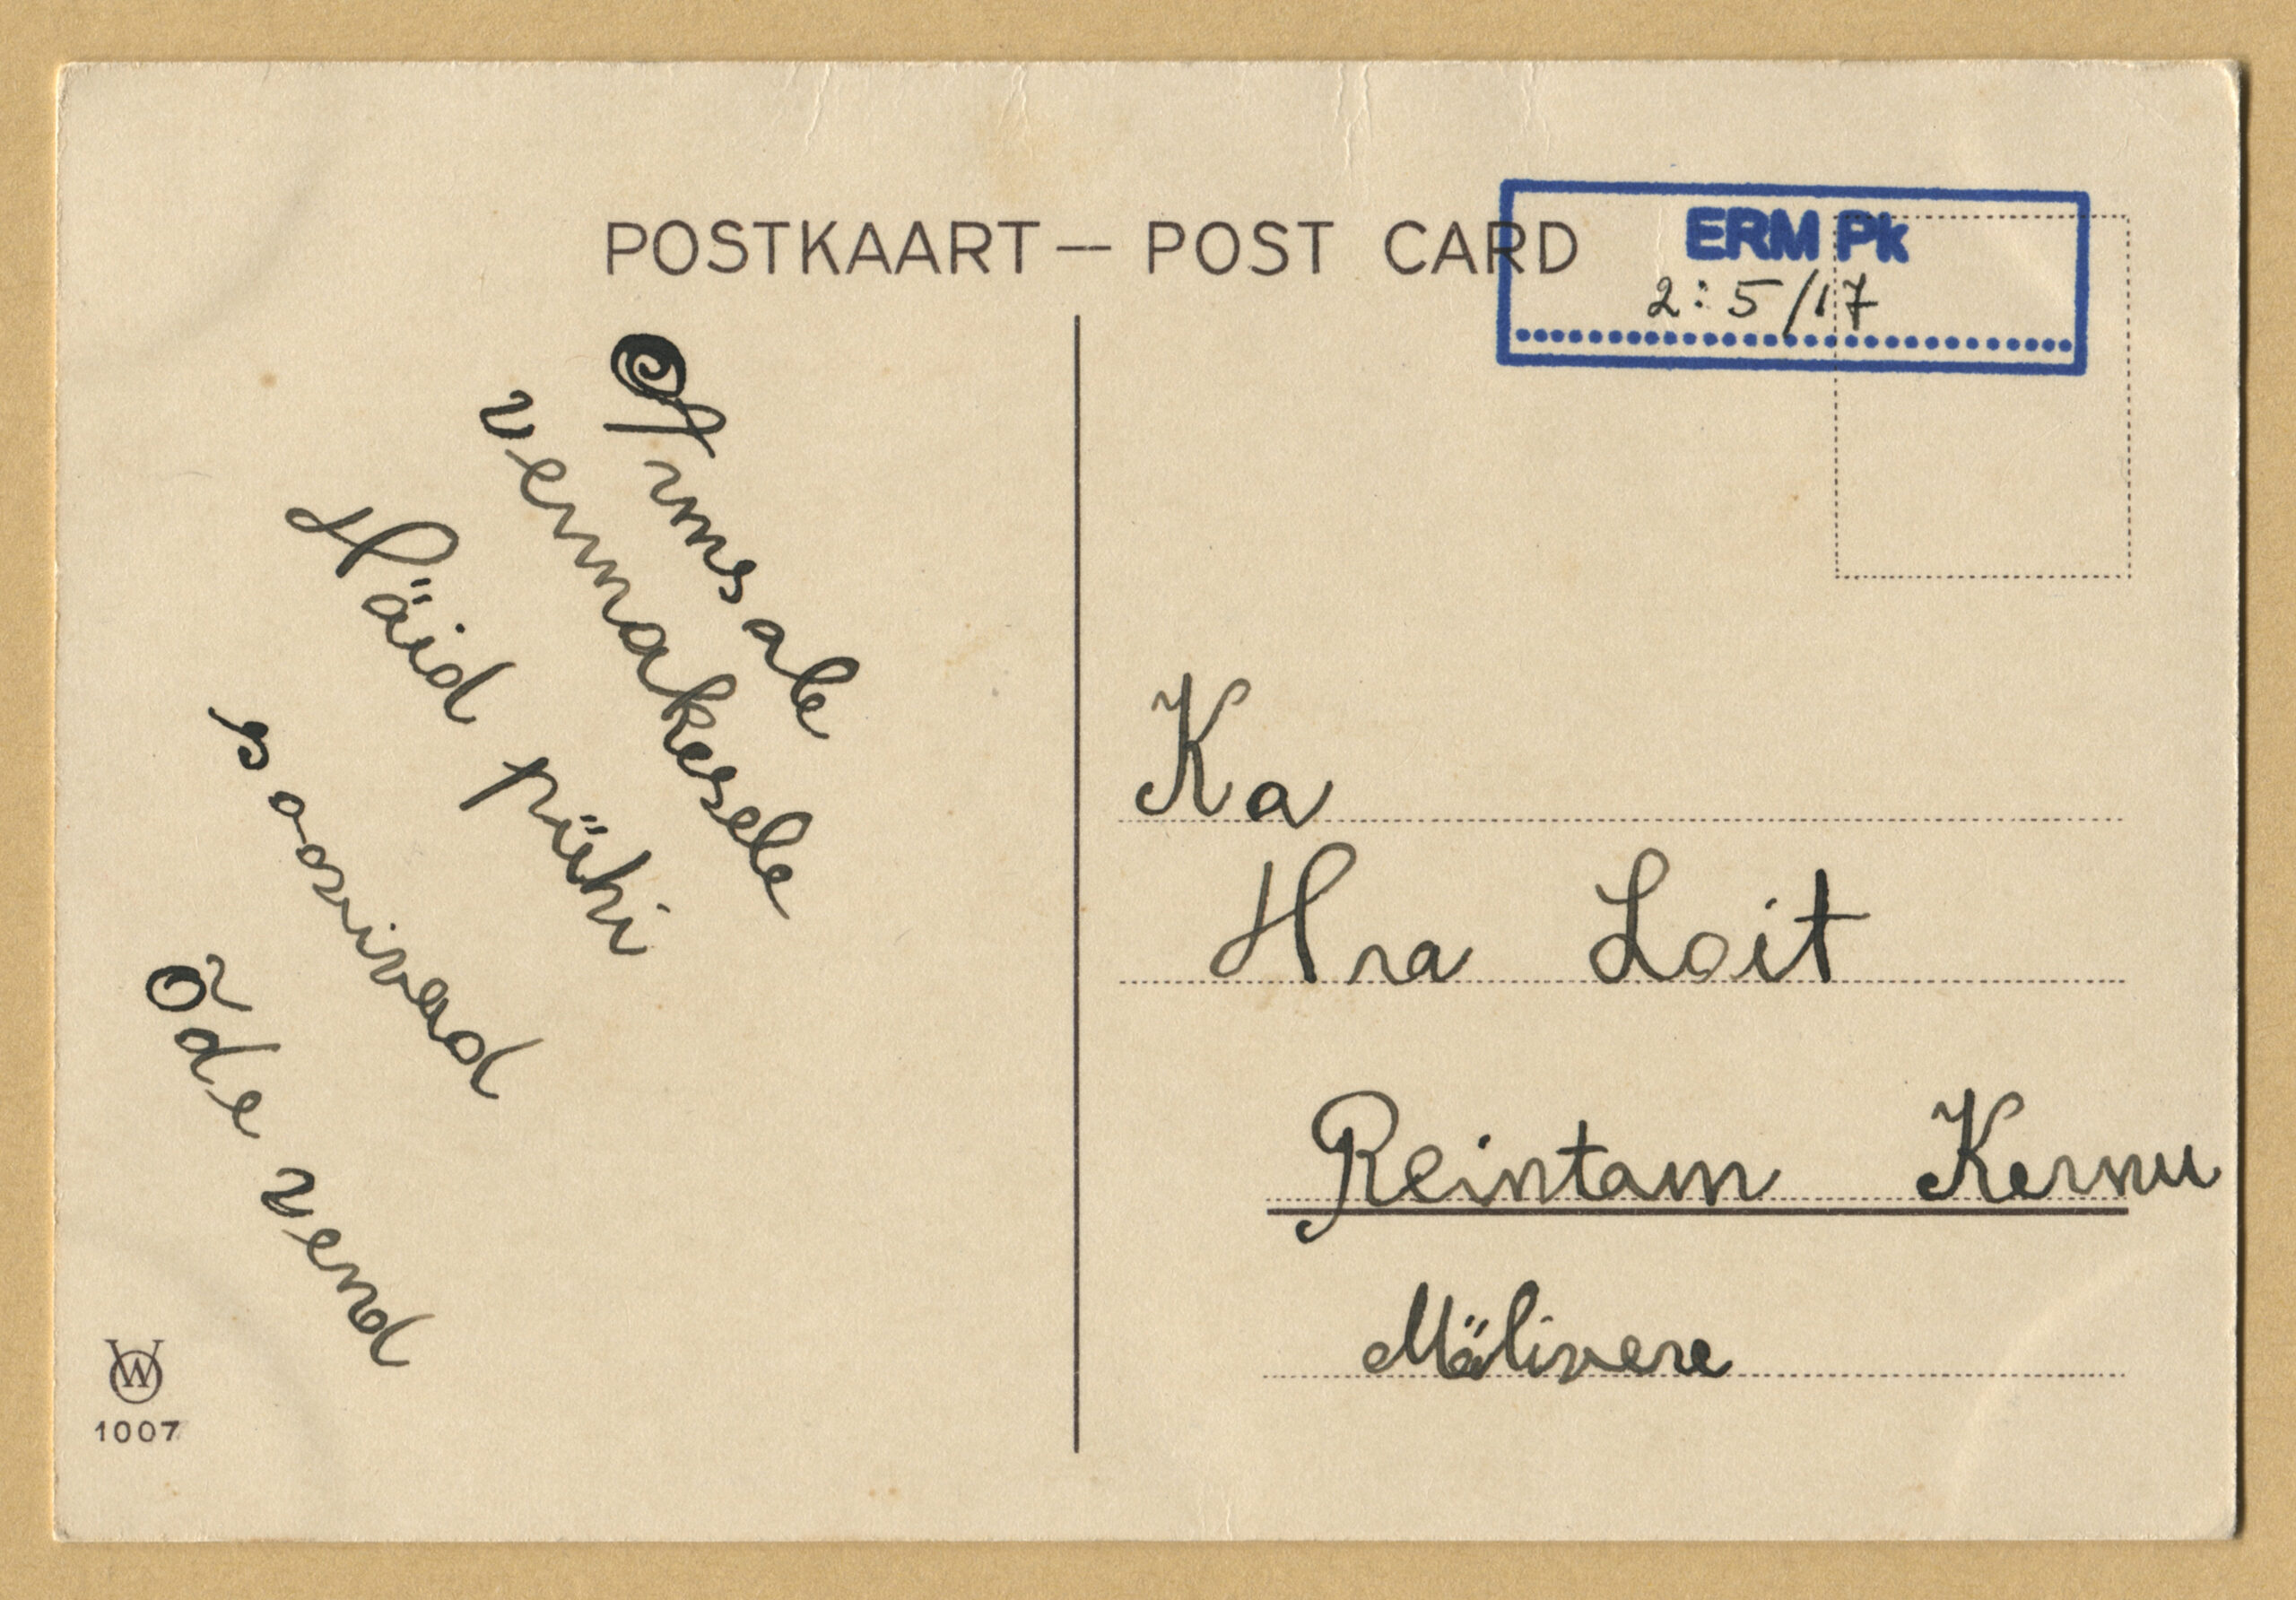 POSTKAART — POST CARD
ERM Pk
2:5/17
Armsale
vennakesele
Häid pühi
soovivad
Õde vend
Ka
Hra Loit
Reintam Kernu
Mälivere
W
1007